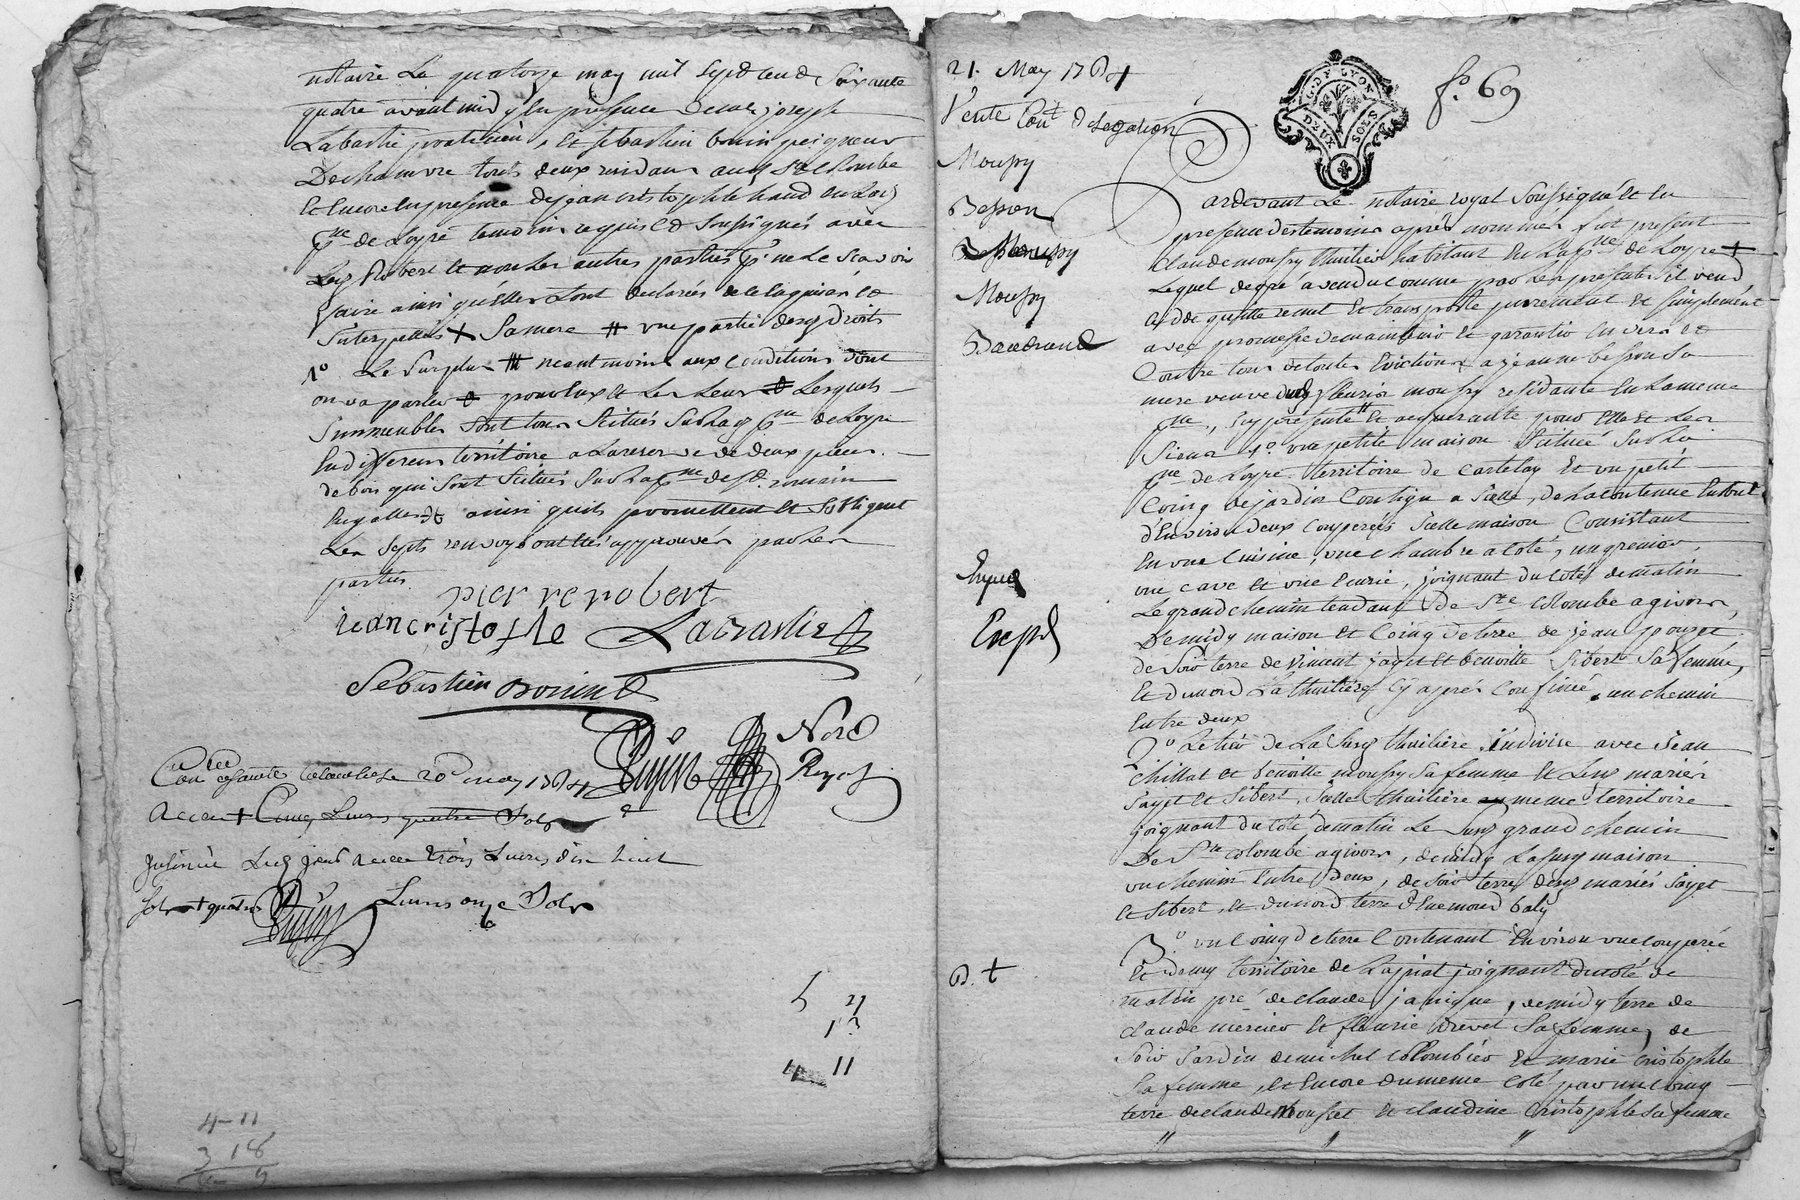 notaire Le quatorze may mil sept cend Soixante
quatre avant midy En presence de me joseph
Labastie praticien, Et sebastien bonin peigneur
De chanvre touts deux residans aud St Colombe
Et Encore En presence de jean cristophle
pne de Loyre temoins requis Et Soussignés avec
Led Robert Et non Les autres parties pr ne Le Scavoir
faire ainsi qu'elles Lont declarés de ce Enquises Et
Interpellés + Sa mere # une partie desd droits
1o Le Surplus ## neantmoins aux conditions dont
on va parler Lesquels
Immeubles Sont tous Scitués Sur Lad pne de Loyre
En differens territoire a La reserve de deux pieces
de bois qui Sont Scitués Sur La pne de St romain
Engalles ainsi quils promettent Et Sobligent
Les Sept renvoys ont Etés approuvés par Les
parties
pierre robert
iean cristofle Labastie
Sebastien bonin
Dujin Nore Royal
Con a Sainte Colombe Le 20 may 1764
Receu + Cinq Livres quatre Sols
Insinué Led jour Receu trois Livres dix huit
sols + quatre Livres onze Sols
5 2
1 3
4 11
4-11
3 18
21. May 1764
Vente Cont delegation
DE LYON
DEUX SOLS
fo. 69
Moussy
Besson
Moussy
Baudrand
Exped
D. +
Pardevant Le notaire royal Soussigné Et En
presence des temoins apres nommés fut present
Claude moussy thuilier habitant En La pne de Loyre +
Lequel de gré a vendu comme par Les presentes il vend
cedde quitte remet Et transporte purement Et Simplement
avec promesse de maintenir Et garantir Envers Et
Contre tous de toutes Evictions a jeanne besson Sa
mere veuve de fleurie moussy residante En La meme
pne, Icy presente # Et acquerante pour Elle Et Les
Siens 1o une petite maison Scitué Sur La
pne de Loyre territoire de Cartelay Et un petit
Coing de jardin Contigu a Icelle, de La contenue En tout
d'Environ deux Couperées Icelle maison Consistant
En une Cuisine, une chambre a coté, un grenier,
une cave Et une Ecurie, joignant du coté de matin
Le grand chemin tendant de Ste Colombe a givors,
De midy maison Et Coing de terre de jean pouzet
de Soir terre de Vincent jayet Et benoitte Sibert Sa femme,
Et du nord La thuiliere Cy apres Confinée un chemin
Entre deux
2o Le tier de La Susd thuiliere Indivise avec jean
Chillat Et benoitte moussy Sa femme Et Lesd mariés
jayet Et Sibert, Icelle thuiliere meme territoire
joignant du coté de matin Le Susd grand chemin
De Ste Colombe a givors, de midy La Susd maison
un chemin Entre deux, de Soir terre desd mariés jayet
Et Sibert, Et du nord terre d'Enemond baly
3o un Coing de terre Contenant Environ une Couperée
Et demy territoire de Lapiat joignant du coté de
matin pré de claude janique, de midy terre de
claude mercier Et fleurie drevet Sa femme, de
Soir jardin de michel Colombier Et marie cristophle
Sa femme, Et Encore du meme coté par un Coing
terre de claude mousset Et claudine Cristophle Sa femme